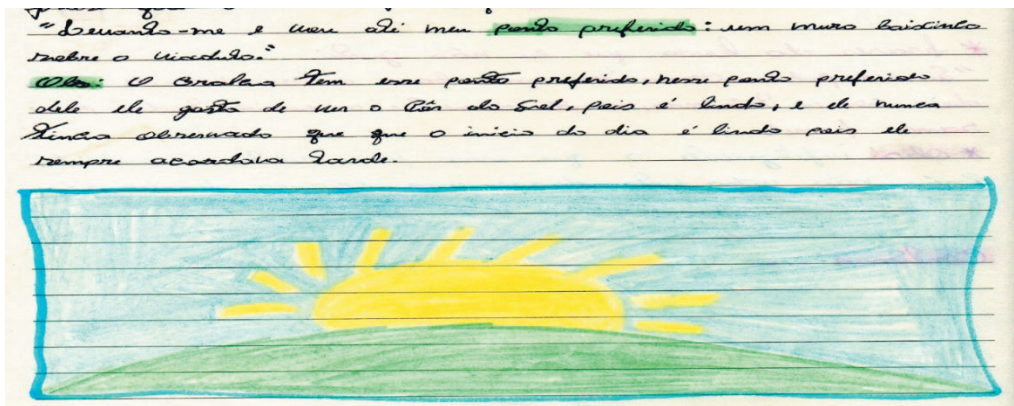 "Levanto-me e vou até meu ponto preferido: um muro baixinho
sobre o viaduto."
Obs: O Graba tem esse ponto preferido, nesse ponto preferido
dele ele gosta de ver o Pôr do Sol, pois é lindo, e ele nunca
tinha observado que que o início do dia é lindo pois ele
sempre acordava tarde.